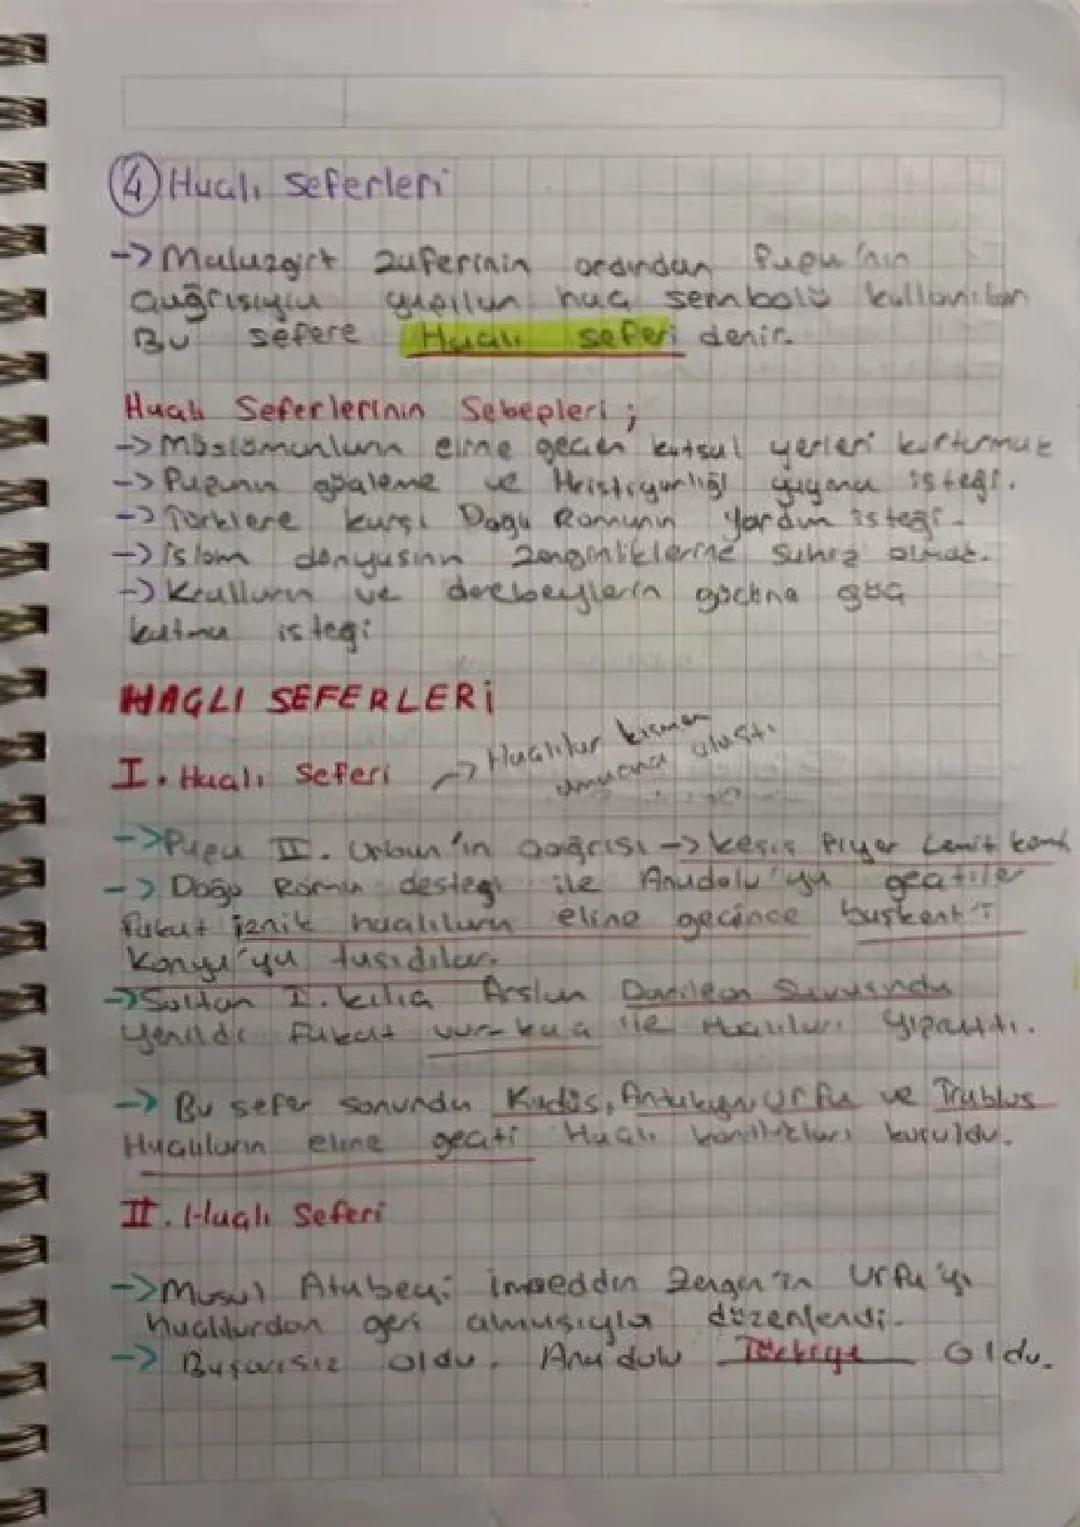 ④ Haçlı Seferleri
-> Malazgirt zaferinin ardından Papa'nın
çağrısıyla yapılan haç sembolü kullanılan
Bu sefere Haçlı seferi denir.
Haçlı Seferlerinin Sebepleri ;
-> Müslümanların eline geçen kutsal yerleri kurtarmak
-> Papanın gözaleme ve Hristiyanlığı yayma isteği.
-> Türklere karşı Doğu Romanın Yardım isteği.
-> İslam dünyasının zenginliklerine sahip olmak.
-> Kralların ve derebeylerin güçlerine güç
katma isteği
HAÇLI SEFERLERİ
I. Haçlı Seferi -> Haçlılar kısmen
amacına ulaştı.
-> Papa II. Urban'ın çağrısı -> keşiş Piyer Lenit
-> Doğu Roma desteği ile Anadolu'ya geçtiler
Fakat iznik haçlıların eline geçince başkent'i
Konya'ya taşıdılar.
-> Sultan I. kılıç Arslan Savaşında
Yenildi Fakat vur-kaç ile Haçlıları yıprattı.
-> Bu sefer sonunda Kudüs, Antakya, Urfa ve Trablus
Haçlıların eline geçti Haçlı kontlukları kuruldu.
II. Haçlı Seferi
-> Musul Atabeyi imaeddin Zengin'in Urfa'yı
haçlılardan geri almasıyla düzenlendi.
-> Başarısız oldu. Anadolu Türkiye Oldu.